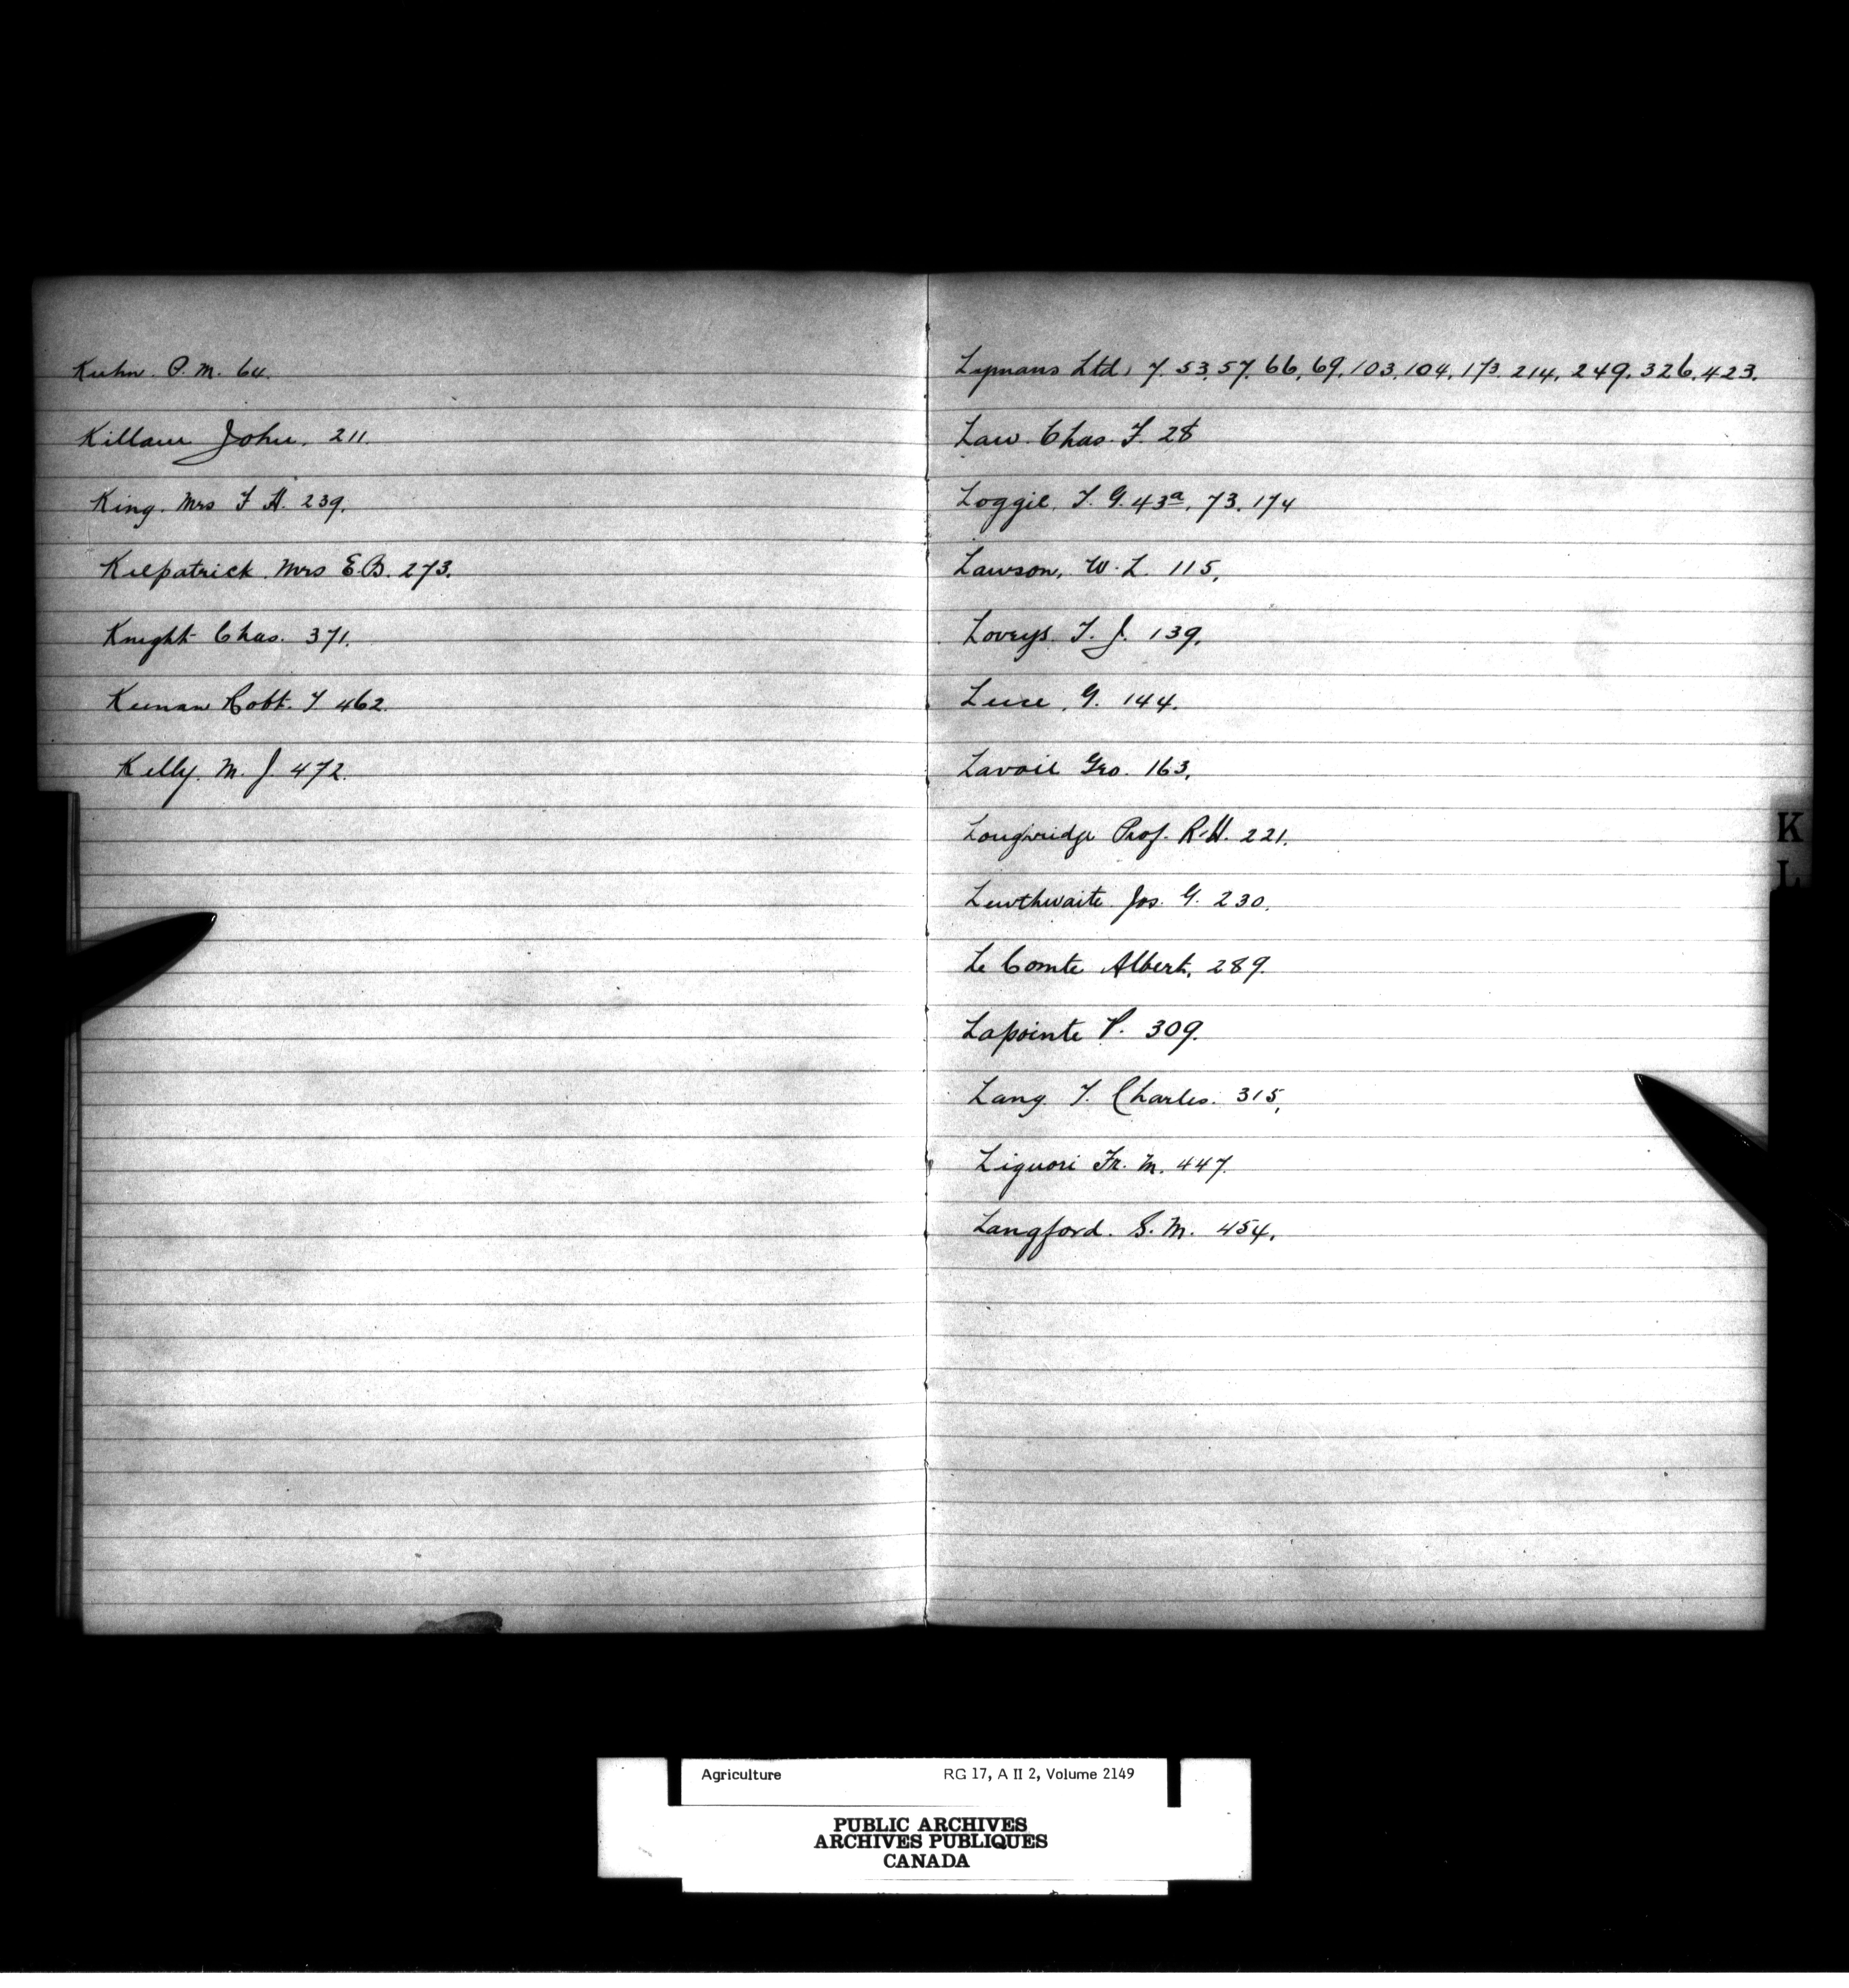 Kuhn. P. M. 64.
Killam John. 211.
King. Mrs F H. 239.
Kilpatrick. Mrs E.B. 273.
Knight Chas. 371.
Keenan Robt. T 462.
Kelly. M. J. 472.
Lymans Ltd, 7. 53. 57. 66, 69, 103. 104, 173. 214, 249. 326. 423.
Law. Chas. F. 28
Loggie, T. G. 43a, 73. 174
Lawson, W. L. 115,
Loveys. T. J. 139,
Luce, G. 144.
Lavoie Geo. 163,
Longwridge Prof. R. H. 221.
K
L
Lewthwaite Jos. G. 230.
Le Comte Albert, 289.
Lapointe P. 309.
Lang T. Charles. 315,
Liguori Fr. M. 447.
Langford. S. M. 454,
Agriculture RG 17, A II 2, Volume 2149
PUBLIC ARCHIVES
ARCHIVES PUBLIQUES
CANADA